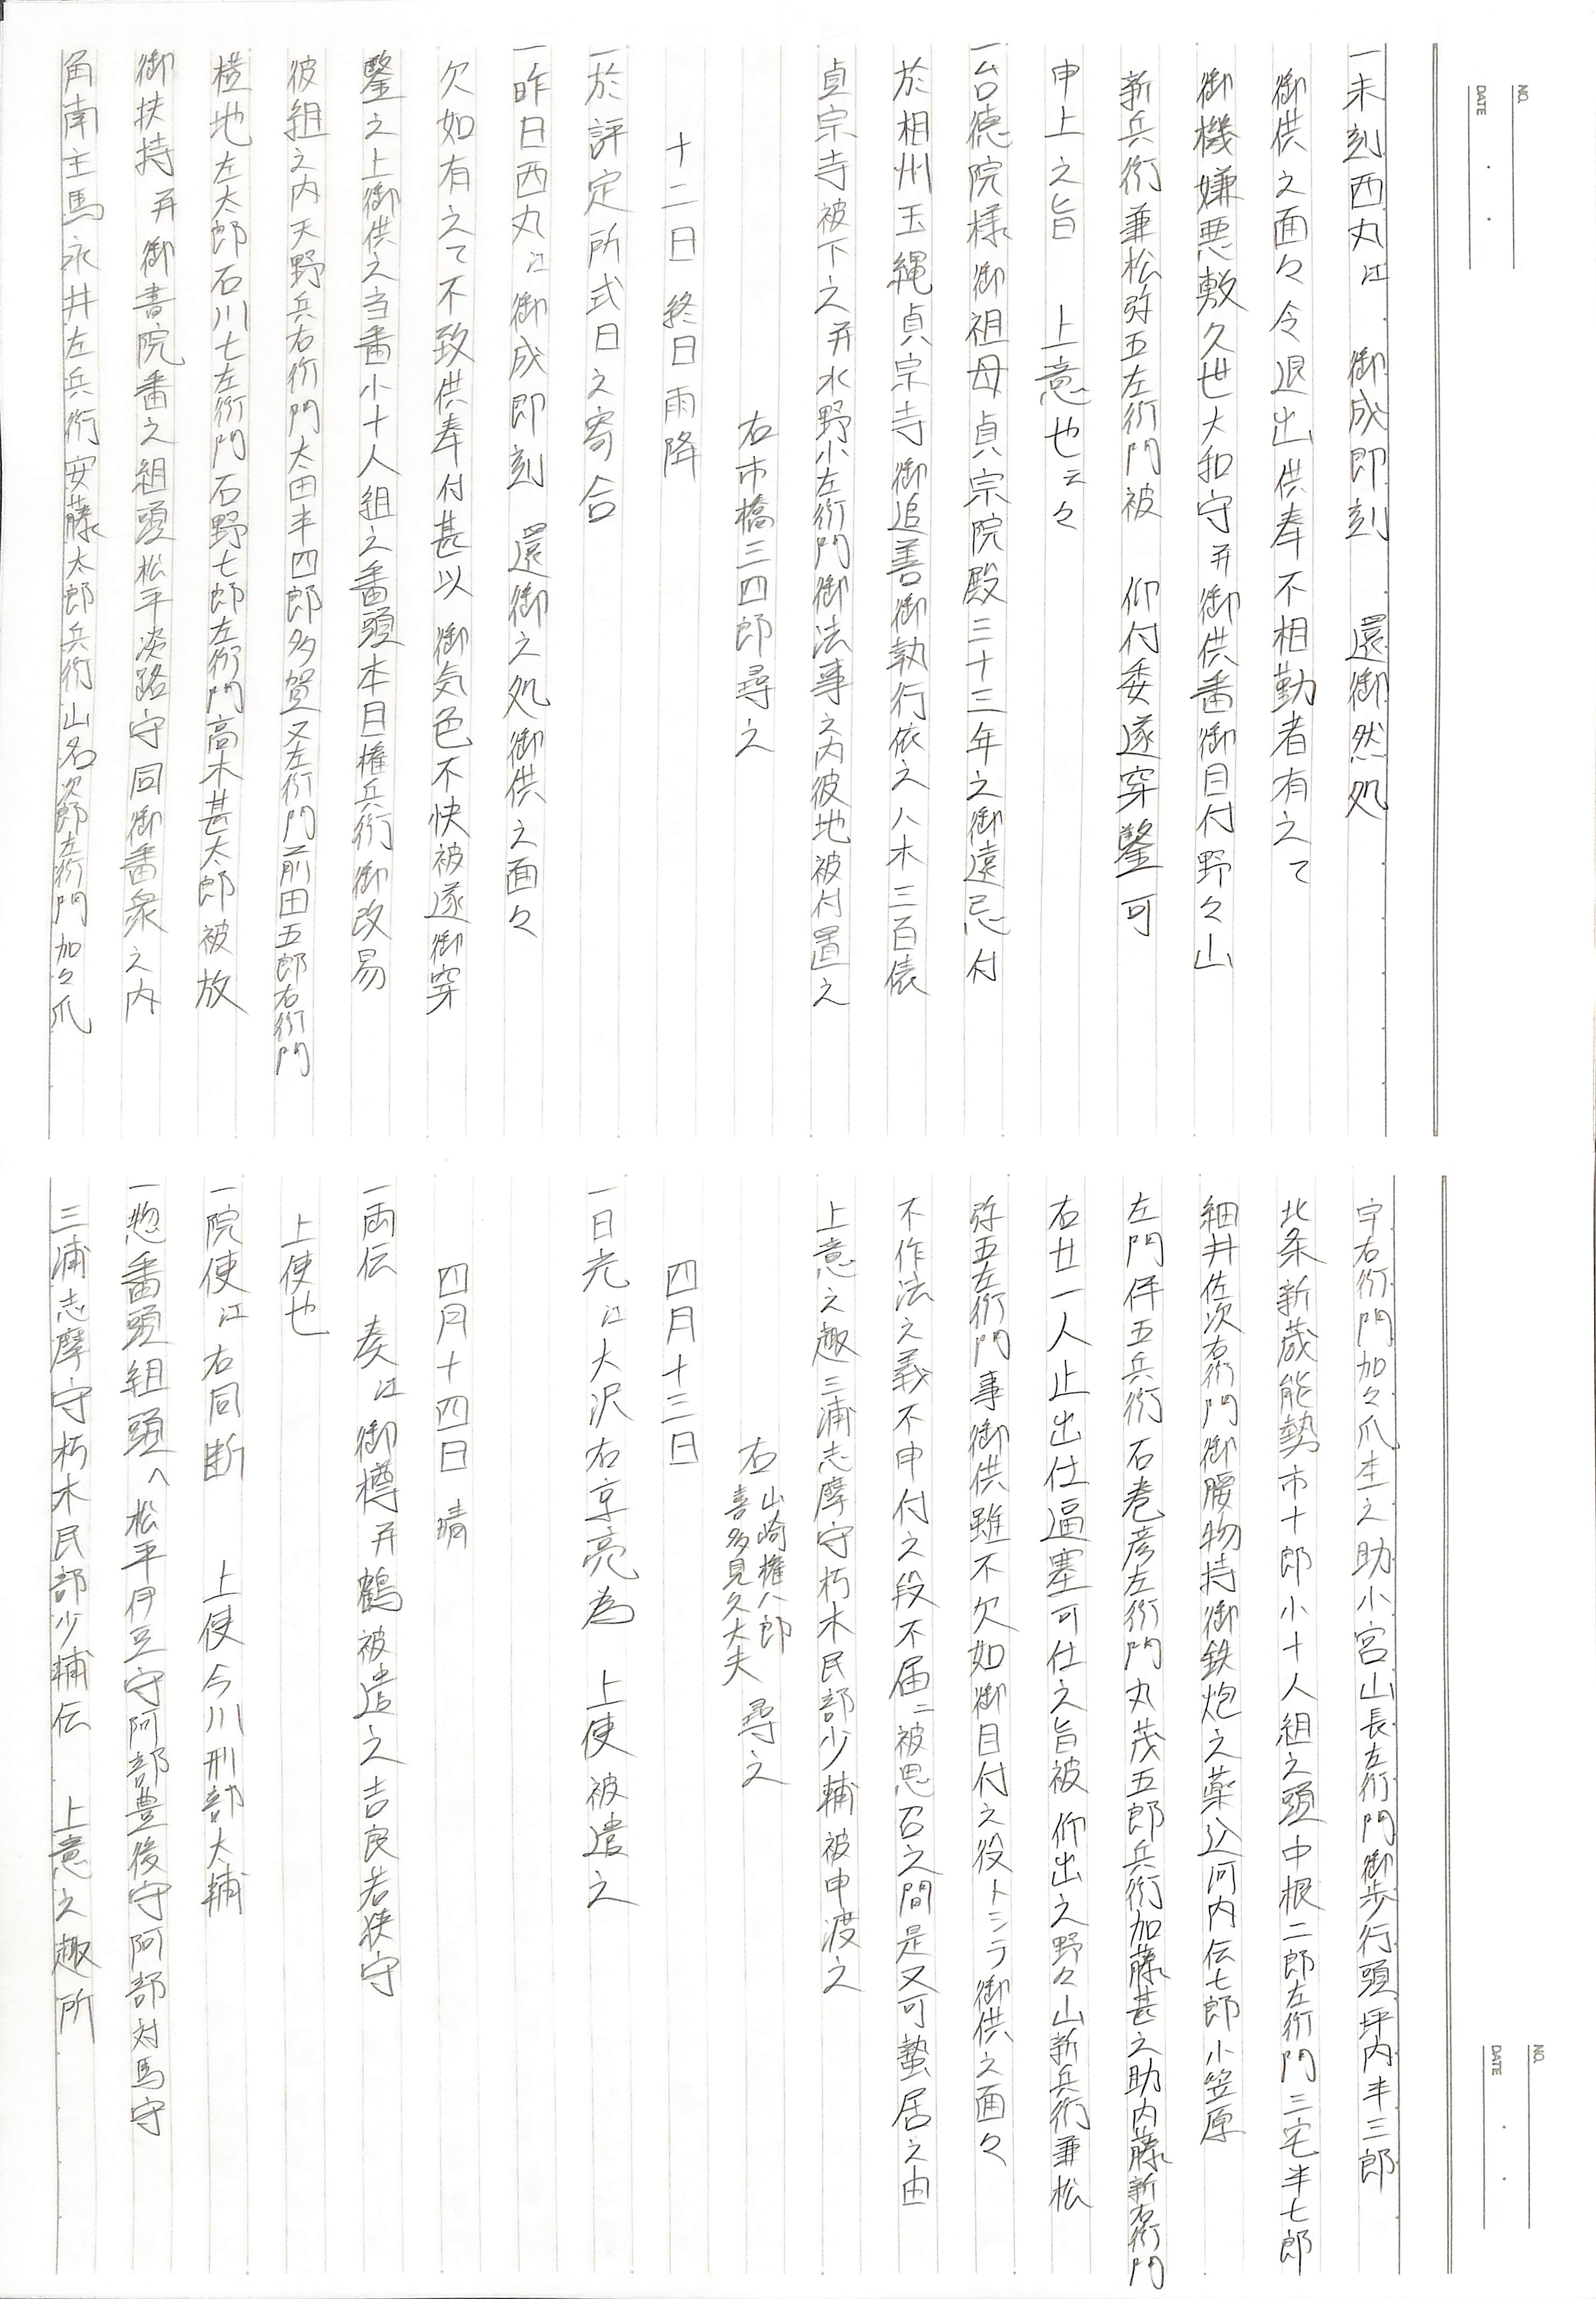 NO.
DATE
一未刻西丸江　御成即刻　還御然処
御供之面々令退出供奉不相勤者有之て
御機嫌悪敷久世大和守并御供番御目付野々山
新兵衛兼松弥五左衛門被　仰付委遂穿鑿可
申上之旨　上意也云々
一台徳院様御祖母貞宗院殿三十三年之御遠忌付
於相州玉縄貞宗寺御追善御執行依之八木三百俵
貞宗寺被下之并水野小左衛門御法事之内彼地被付置之
右市橋三四郎尋之
十二日終日雨降
一於評定所式日之寄合
一昨日西丸江御成即刻　還御之処御供之面々
欠如有之て不致供奉付甚以御気色不快被遂御穿
鑿之上御供之当番小十人組之番頭本日権兵衛御改易
彼組之内天野兵右衛門太田半四郎多賀又左衛門前田五郎右衛門
横地左太郎石川七左衛門石野七郎左衛門高木甚太郎被放
御扶持并御書院番之組頭松平淡路守同御番衆之内
角南主馬永井左兵衛安藤太郎兵衛山名次郎左衛門加々爪
NO.
DATE
宇右衛門加々爪杢之助小宮山長左衛門御歩行頭坪内半三郎
北条新蔵能勢市十郎小十人組之頭中根二郎左衛門三宅半七郎
細井佐次右衛門御腰物持御鉄炮之薬込河内伝七郎小笠原
左門伴五兵衛石巻彦左衛門丸茂五郎兵衛加藤甚之助内藤新右衛門
右廿一人止出仕逼塞可仕之旨被仰出之野々山新兵衛兼松
弥五左衛門事御供雖不欠如御目付之役トシテ御供之面々
不作法之義不申付之段不届ニ被思召之間是又可蟄居之由
上意之趣三浦志摩守朽木民部少輔被申渡之
右　山崎権八郎　喜多見久大夫　尋之
四月十三日
一日光江大沢右京亮為　上使被遣之
四月十四日　晴
一両伝　奏江御樽并鶴被遣之吉良若狭守
上使也
一院使江右同断　上使今川刑部大輔
一惣番頭組頭へ松平伊豆守阿部豊後守阿部対馬守
三浦志摩守朽木民部少輔伝　上意之趣所